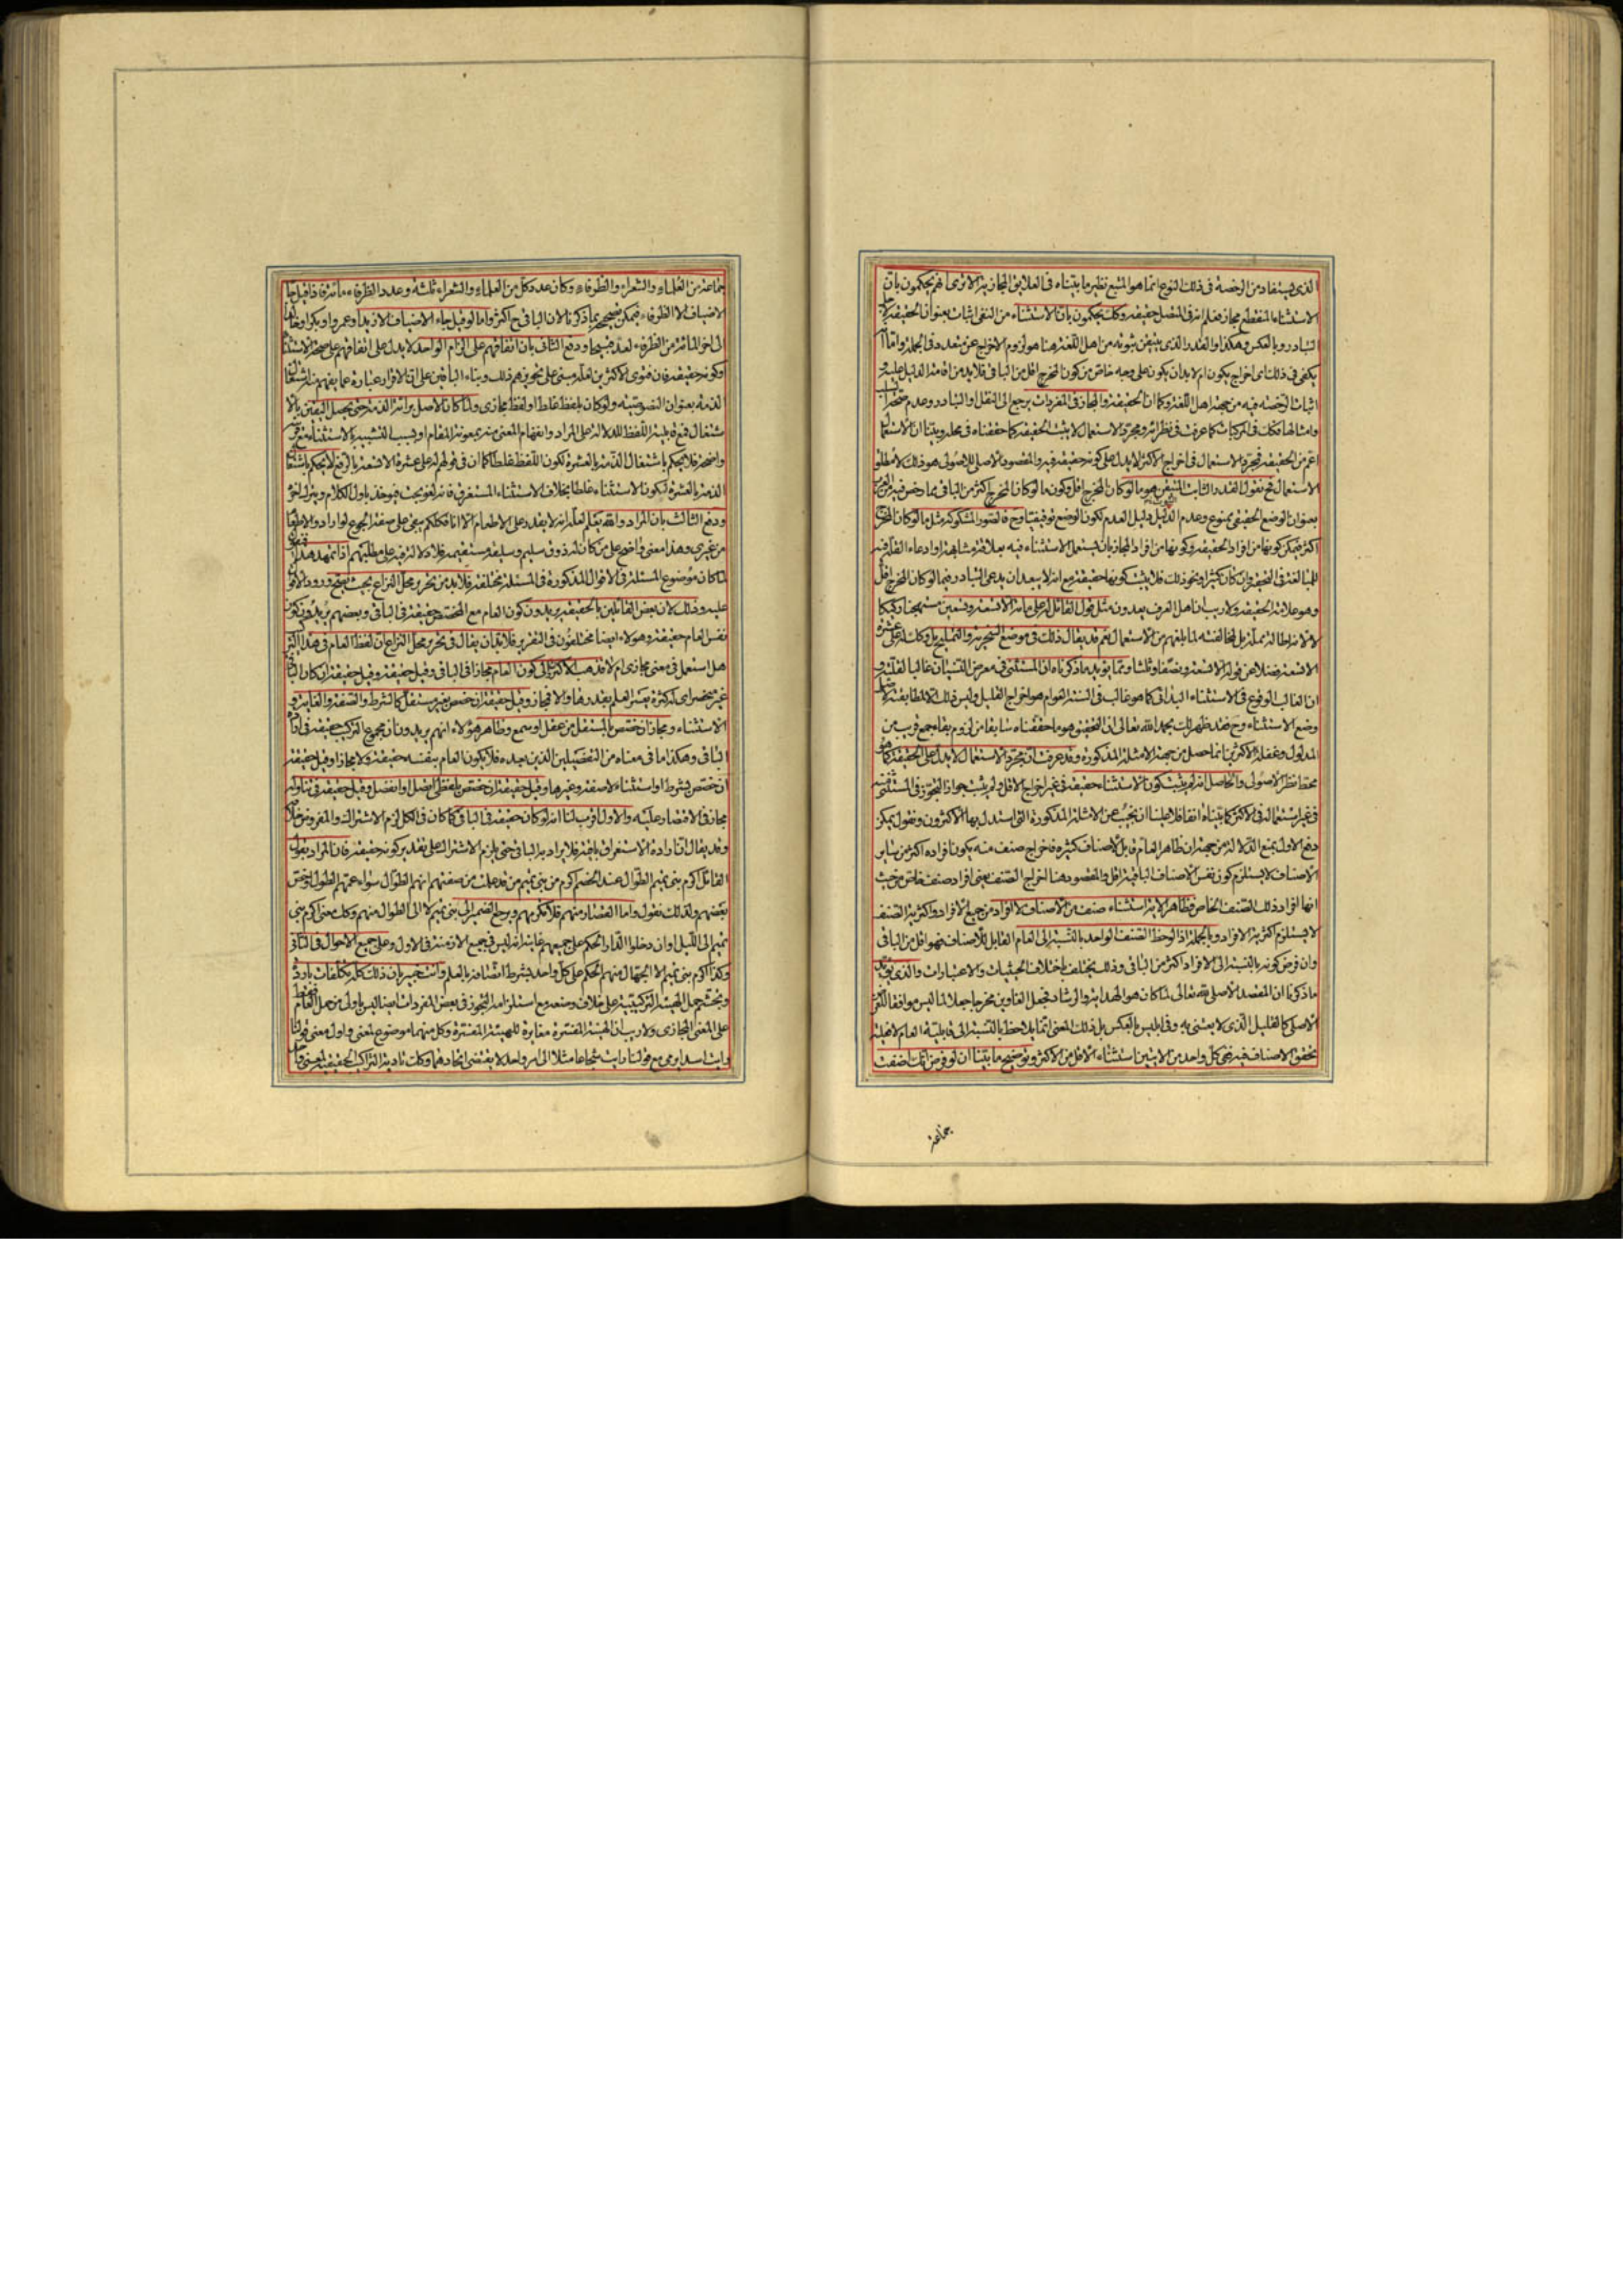 الذى يستفاد من الرخصة فى ذلك النوع انما هو المتبع نظير ما بيناه فى العلايق المجازية الا ترى انهم يحكمون بان
الاستثناء المنقطع مجاز فعلم انه فى المتصل حقيقة وكك يحكمون بان الاستثناء من النفى اثبات بعنوان الحقيقة
التبادر وبالعكس وهكذا والقدر الذى يتيقن ثبوته من اهل اللغة هنا هو لزوم الاخراج عن متعدد فى الجملة واما انه
يكفى فى ذلك اى اخراج يكون ام لا بد ان يكون على وجه خاص من كون المخرج اقل من الباقى فلا بد من اقامة الدليل عليه
اثبات الرخصة فيه من جهة اهل اللغة وكما ان الحقيقة والمجاز فى المفردات يرجع الى النقل والتبادر وعدم صحة السلب
وامثالها فكك فى المركبات كما عرفت فى نظائره ومجرد الاستعمال لا يثبت الحقيقة كما حققناه فى محله وبينا ان الاستعمال
اعم من الحقيقة فمجرد الاستعمال فى اخراج الاكثر لا يدل على كونه حقيقة فيه والمقصود الاصلى للاصولى هو ذلك لا مطلق
الاستعمال فح نقول القدر الثابت المتيقن هو ما لو كان المخرج اقل وكون ما لو كان المخرج اكثر من الباقى مما رخص فيه
بعنوان الوضع الحقيقى ممنوع وعدم الدليل دليل العدم لكون الوضع توقيفيا وح فالصور المشكوكة مثل ما لو كان المخرج
اكثر فيمكن كونها من افراد الحقيقة وكونها من افراد المجاز بان يستعمل الاستثناء فيه بعلاقة مشابهة او ادعاء القلة فيه
للمبالغة فى التحقير وان كان كثيرا ونحو ذلك فلا يثبت كونها حقيقة مع انه لا يبعد ان يدعى التبادر فيما لو كان المخرج اقل
وهو علامة الحقيقة ولا ريب ان اهل العرف يعدون مثل قول القائل له على مائة الا تسعة وتسعين مستهجنا ركيكا
الا تسعة فضلا عن قوله الا تسعة ونصفا وثلثا ومما يؤيد ما ذكرناه ان المستثنى فى معرض النسيان غالبا لقلته
ان الغالب الوقوع فى الاستثناء البدائى كما هو غالب فى السنة العوام هو اخراج القليل وليس ذلك الا لمطابقته لاصل
وضع الاستثناء وح فقد ظهر لك بحمد الله تعالى ان التحقيق هو ما حققناه سابقا من لزوم بقاء جمع قريب من
المدلول وغفلة الاكثرين انما حصل من جهة الامثلة المذكورة وقد عرفت ان مجرد الاستعمال لا يدل على الحقيقة كما هو
محط نظر الاصولى والحاصل انه لم يثبت كون الاستثناء حقيقة فى غير اخراج الاقل ولم يثبت جواز التجوز فى المستثنى منه
فى غير استعماله فى الاكثر كما بيناه انفا فلا علينا ان نجيب عن الامثلة المذكورة التى استدل بها الاكثرون ونقول يمكن
دفع الاول بمنع الدلالة من جهة ان ظاهر العام قابل لاصناف كثيرة فاخراج صنف منه يكون افراده اكثر من ساير
الاصناف لا يستلزم كون نفس الاصناف الباقية اقل والمقصود هنا اخراج الصنف يعنى افراد صنف خاص من حيث
انها افراد ذلك الصنف الخاص فظاهر الاية استثناء صنف من الاصناف لا افراد من جميع الافراد واكثرية الصنف
لا يستلزم اكثرية الافراد وبالجملة اذا لوحظ الصنف الواحد بالنسبة الى العام القابل للاصناف فهو اقل من الباقى
وان فرض كونه بالنسبة الى الافراد اكثر من الباقى وذلك يختلف باختلاف الحيثيات والاعتبارات والذى يؤيد
ما ذكرنا ان المقصد الاصلى لله تعالى لما كان هو الهداية والارشاد فجعل الغاوين مخرجا جعلا لما ليس موافقا للغرض
الاصلى كالقليل الذى لا يعتنى به وفى ابليس بالعكس بل ذلك المعنى انما يلاحظ بالنسبة الى قابلية العام لا فعلية
تحقق الاصناف فيه ففى كل واحد من الايتين استثناء الاقل من الاكثر وتوضيح ما بينا ان لو فرض انك اضفت
جماعة
جماعة من العلماء والشعراء والظرفاء وكان عدد كل من العلماء والشعراء ثلثة وعدد الظرفاء مائة فاذا قيل جاء
الاضياف الا الظرفاء فيمكن تصحيحه بما ذكرنا لان الباقى ح اكثر واما لو قيل جاء الاضياف الا زيدا وعمروا وبكرا وخالدا
الى اخر المائة من الظرفاء لعد قبيحا ودفع الثانى بان اتفاقهم على الزام الواحد لا يدل على اتفاقهم على صحة الاستثناء
وكونه حقيقة فان فتوى الاكثرين لعله مبنى على تجويزهم ذلك وبناء الباقين على ان الاقرار عبارة عما يفهم منه اشتغال
الذمة بعنوان النصوصية ولو كان بلفظ غلط او لفظ مجازى ولما كان الاصل برائة الذمة حتى يحصل اليقين بالا
شتغال فمع قابلية اللفظ للدلالة على المراد وانفهام المعنى منه بمعونة المقام او بسبب التشبيه بالاستثناء
واضحة فلا يحكم باشتغال الذمة بالعشرة لكون اللفظ غلطا كما ان فى قولهم له على عشرة الا تسعة بالرفع لا يحكم باشتغال
الذمة بالعشرة لكون الاستثناء غلطا بخلاف الاستثناء المستغرق فانه لغو بحت فيؤخذ باول الكلام ويترك اخره
ودفع الثالث بان المراد والله يعلم لعله انه لا يقدر على الاطعام الا انا فكلكم يبقى على صفة الجوع لو اراد والاطعام
من غيرى وهذا معنى واضح على من كان له ذوق سليم وسليقة مستقيمة فلا دلالة فيه على مطلبهم اذا تمهد هذا فنقول
لما كان موضوع المسئلة فى الاقوال المذكورة فى المسئلة مختلفة فلا بد من تحرير محل النزاع بحيث يصح ورود الاقوال
عليه وذلك لان بعض القائلين بالحقيقة يريدون كون العام مع المخصص حقيقة فى الباقى وبعضهم يريدون كون
نفس العام حقيقة وهؤلاء ايضا مختلفون فى التقرير فلا بد ان يقال فى تحرير محل النزاع ان لفظ العام فى هذا التركيب
هل استعمل فى معنى مجازى ام لا فذهب الاكثر الى كون العام مجازا فى الباقى وقيل حقيقة وقيل حقيقة ان كان الباقى
غير منحصر اى له كثرة يعسر العلم بقدرها والا فمجاز وقيل حقيقة ان خص بغير مستقل كالشرط والصفة والغاية و
الاستثناء ومجاز ان خص بالمستقل من عقل او سمع وظاهر هؤلاء انهم يريدون ان مجموع التركيب حقيقة فى ارادة
الباقى وهكذا ما فى معناه من التفصيلين الذين بعده فلا يكون العام بنفسه حقيقة ولا مجازا وقيل حقيقة
ان خص بشرط او استثناء لا صفة وغيرها وقيل حقيقة ان خص بلفظى اتصل او انفصل وقيل حقيقة فى تناوله
مجاز فى الاقتصار عليه والاول اقرب لنا انه لو كان حقيقة فى الباقى كما كان فى الكل لزم الاشتراك والمفروض خلافه
وقد يقال ان ارادة الاستغراق باقية فلا يراد به الباقى حتى يلزم الاشتراك على تقدير كونه حقيقة فان المراد بقول
القائل اكرم بنى تميم الطوال عند الخصم اكرم من بنى تميم من قد علمت من صفتهم انهم الطوال سواء عمهم الطول او خص
بعضهم ولذلك نقول واما القصار منهم فلا تكرمهم ويرجع الضمير الى بنى تميم لا الى الطوال منهم وكك معنى اكرم بنى
تميم الى الليل او ان دخلوا الدار الحكم على جميعهم غاية انه ليس فى جميع الازمنة فى الاول وعلى جميع الاحوال فى الثانى
وكذا اكرم بنى تميم الا الجهال منهم الحكم على كل واحد بشرط اتصافه بالعلم وانت خبير بان ذلك كله تكلفات باردة
وتجشم حمل الهيئة التركيبية على خلاف وضعه مع استلزامه التجوز فى بعض المفردات ايضا ليس باولى من حمل العام فقط
على المعنى المجازى ولا ريب ان الهيئة المتغيرة مغايرة للهيئة المتغيرة وكل منهما موضوع لمعنى واول معنى قولنا
رايت اسدا يرمى مع قولنا رايت شجاعا مثلا الى امر واحد لا يقتضى اتحادهما وكك تادية التراكيب الحقيقية لمعنى واحد